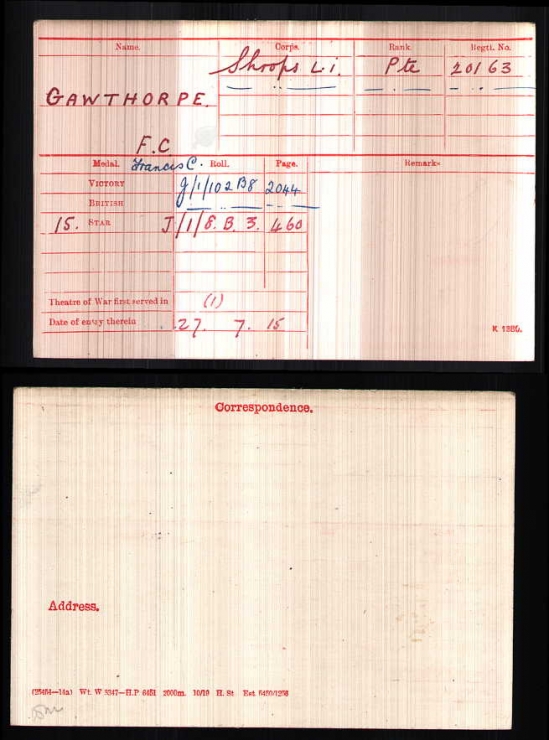 Name. Corps. Rank Regtl. No.
Shrops L.i. Pte 20163
GAWTHORPE.
F.C
Francis C.
Medal. Roll. Page. Remarks
VICTORY J/1/102 B8 2044
BRITISH
15. STAR J/1/8. B. 3. 460
Theatre of War first served in (1)
Date of entry therein 27. 7. 15
K 1380.
Correspondence.
Address.
Wt. W 5347—H.P 2000m. 10/19 H. St